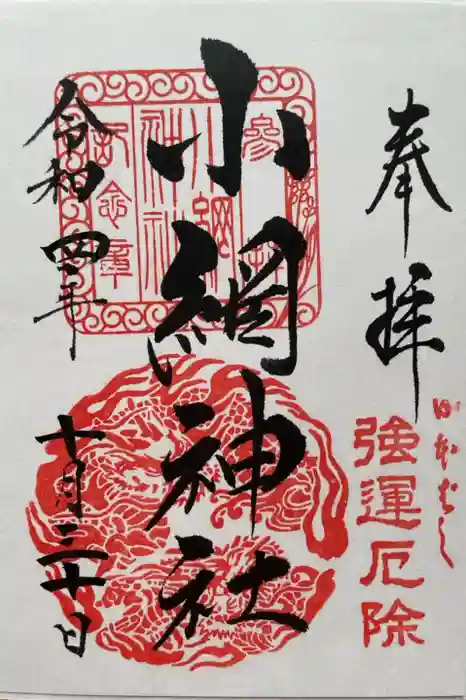 奉拝
にほんばし
強運厄除
小網神社
参拝
小網
神社
記念章
令和四年
十月三十日